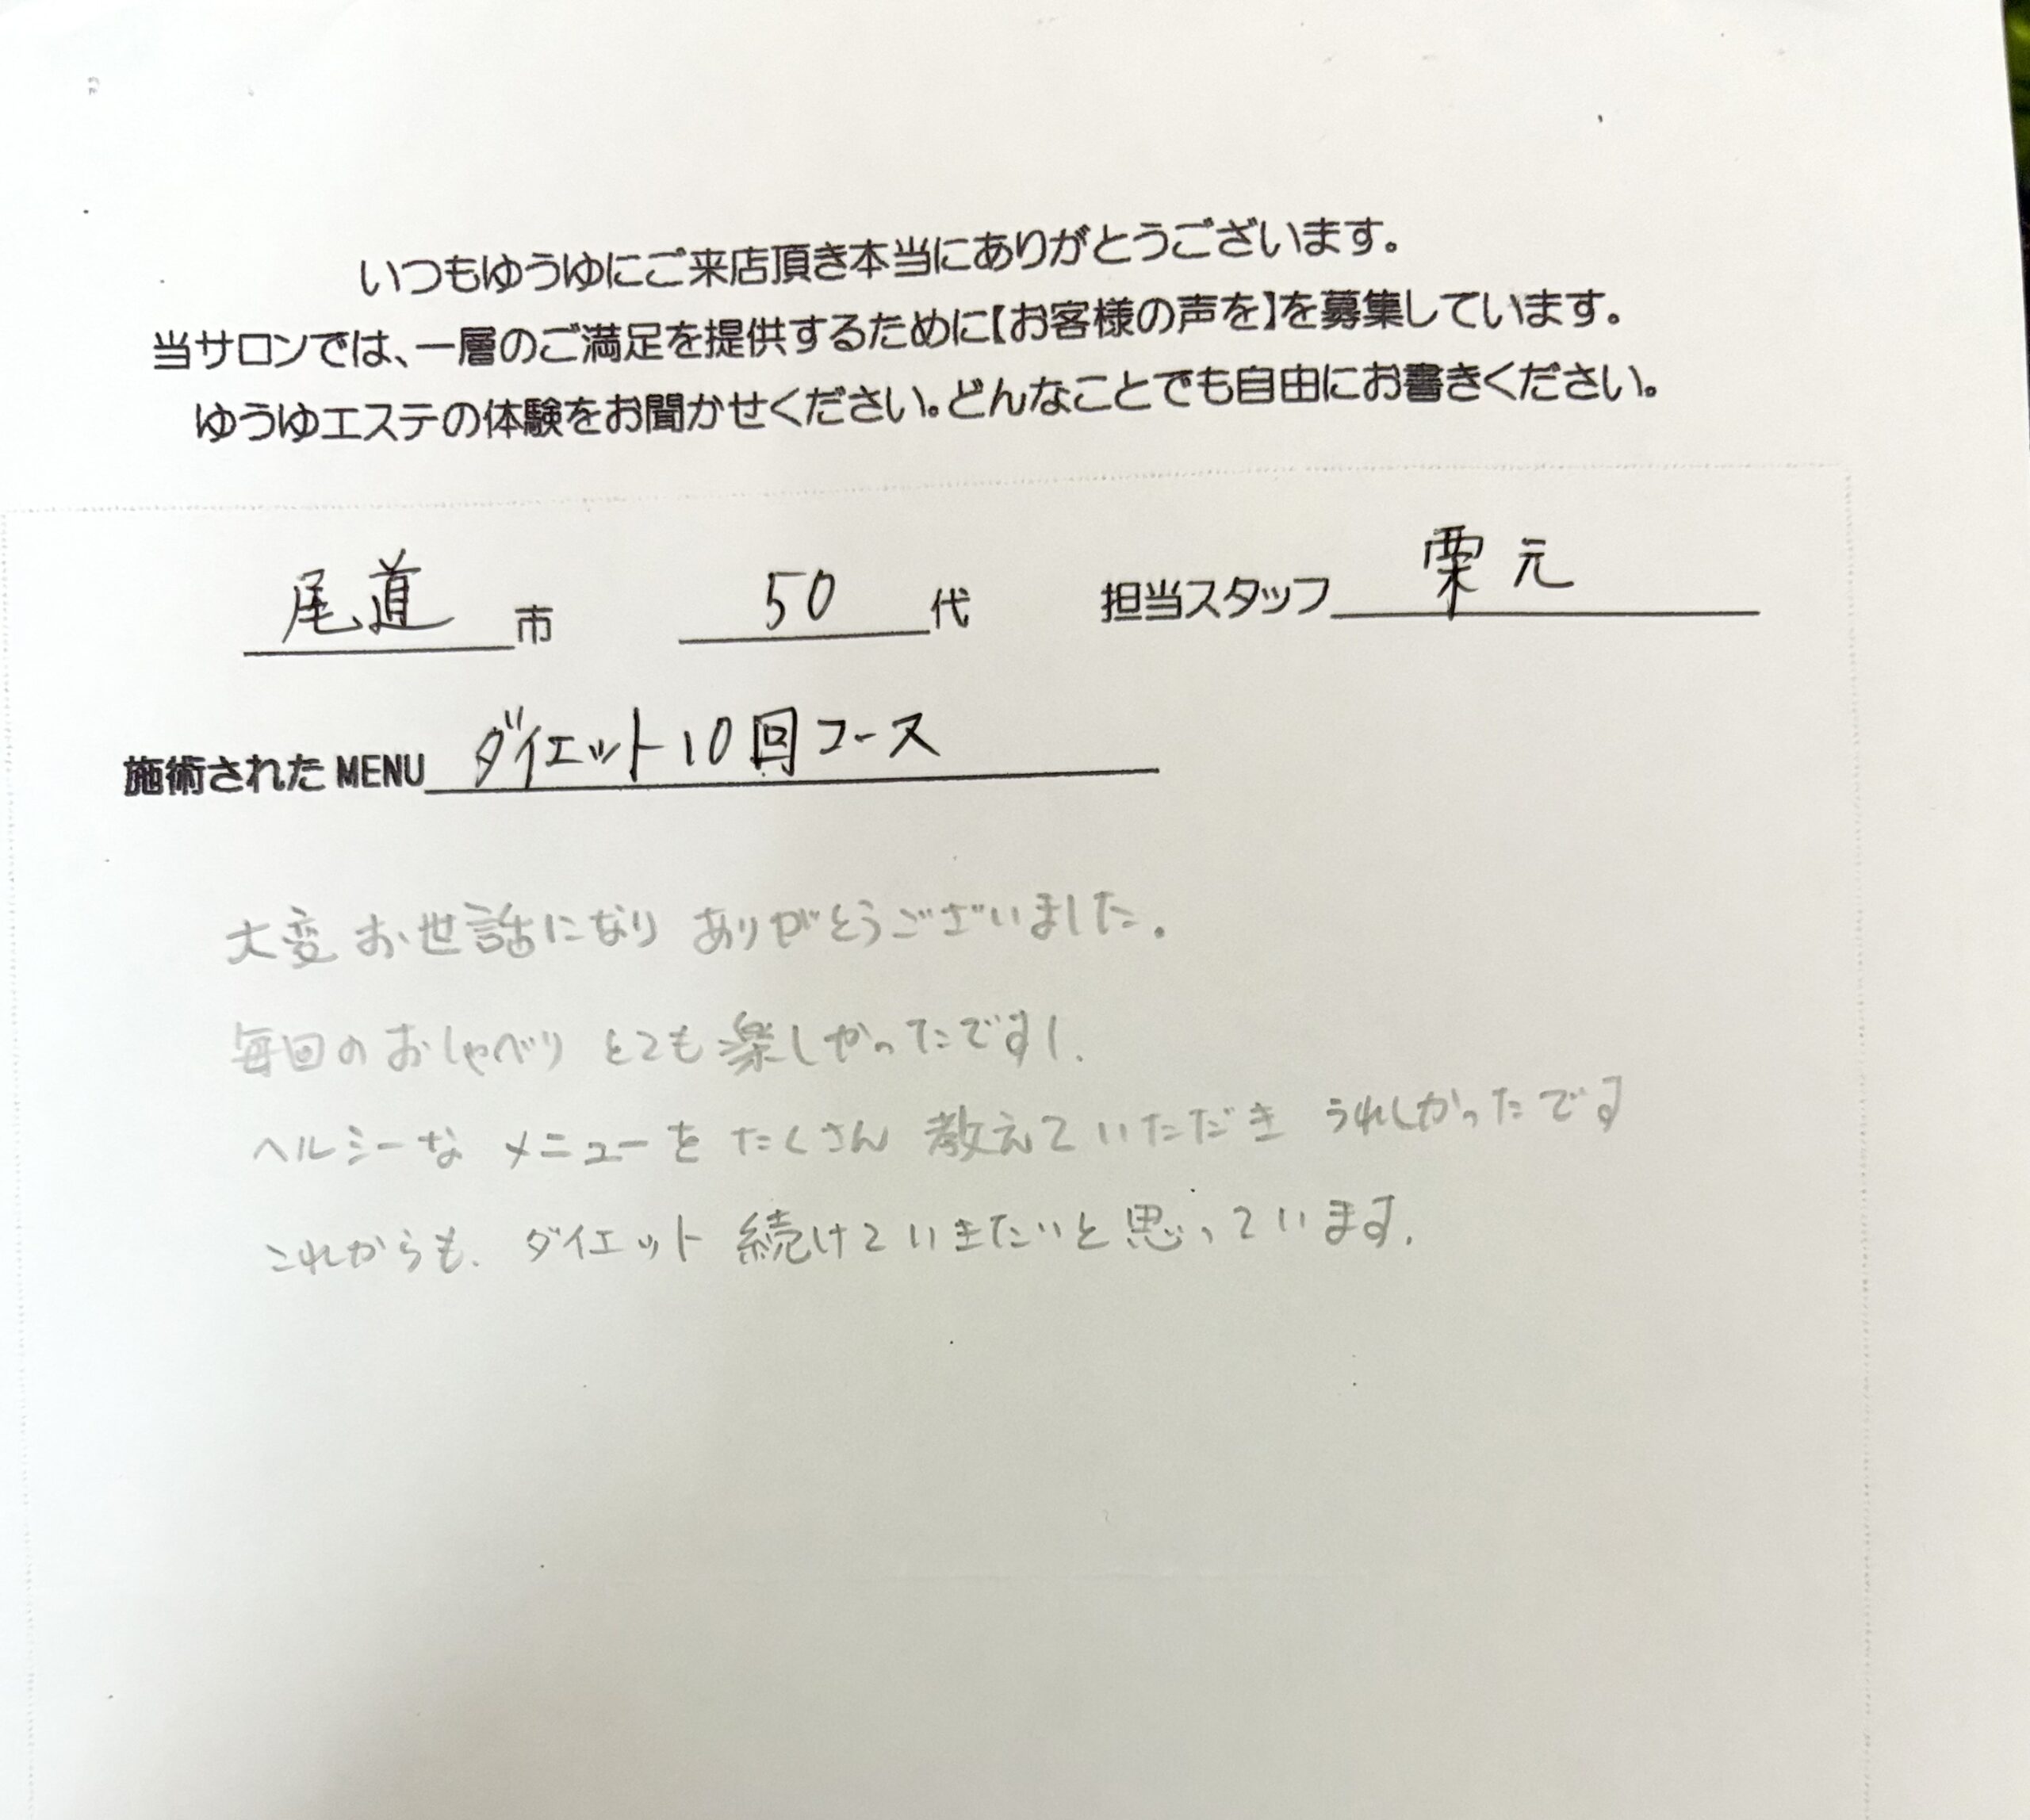 いつもゆうゆにご来店頂き本当にありがとうございます。
当サロンでは、一層のご満足を提供するために【お客様の声を】を募集しています。
ゆうゆエステの体験をお聞かせください。どんなことでも自由にお書きください。
尾道市 50代 担当スタッフ 栗元
施術されたMENU ダイエット10回コース
大変お世話になり ありがとうございました。
毎回のおしゃべり とても楽しかったです!.
ヘルシーな メニューを たくさん 教えていただき うれしかったです
これからも、ダイエット 続けていきたいと思っています.